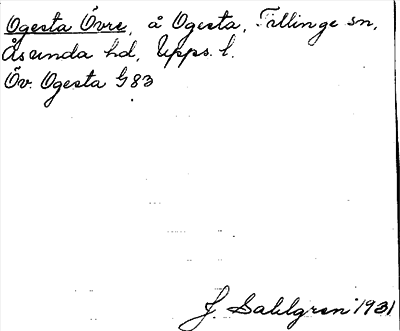 Ogesta Övre, å Ogesta, Tillinge sn,
Åsunda hd, Upps. l.
Öv. Ogesta G 83
J. Sahlgren 1931